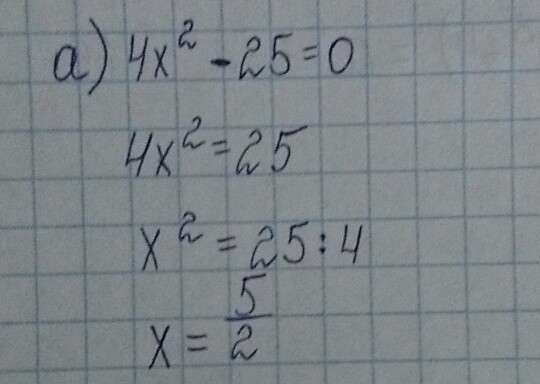 а) 4x² - 25 = 0
4x² = 25
x² = 25 : 4
x = 5/2